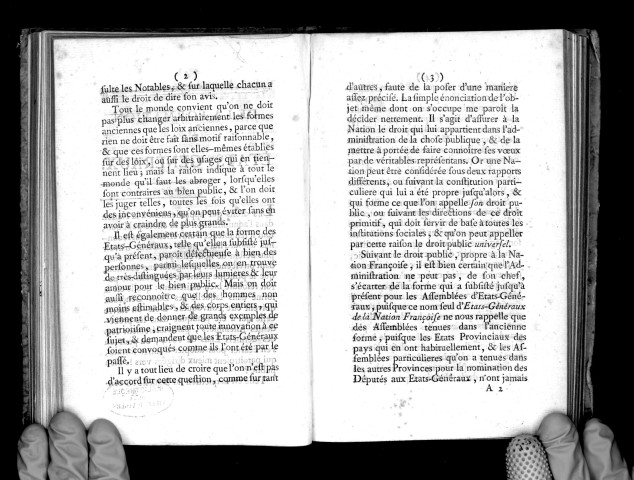 ( 2 )
sulte les Notables, & sur laquelle chacun a
aussi le droit de dire son avis.
Tout le monde convient qu'on ne doit
pas plus changer arbitrairement les formes
anciennes que les loix anciennes, parce que
rien ne doit être fait sans motif raisonnable,
& que ces formes sont elles-mêmes établies
sur des loix, ou sur des usages qui en tien-
nent lieu; mais la raison indique à tout le
monde qu'il faut les abroger, lorsqu'elles
sont contraires au bien public, & l'on doit
les juger telles, toutes les fois qu'elles ont
des inconvéniens, qu'on peut éviter sans en
avoir à craindre de plus grands.
Il est également certain que la forme des
Etats-Généraux, telle qu'elle a subsisté jus-
qu'à présent, paroît défectueuse à bien des
personnes, parmi lesquelles on en trouve
de très-distinguées par leurs lumières & leur
amour pour le bien public. Mais on doit
aussi reconnoître que des hommes non
moins estimables, & des corps entiers, qui
viennent de donner de grands exemples de
patriotisme, craignent toute innovation à ce
sujet, & demandent que les Etats-Généraux
soient convoqués comme ils l'ont été par le
passé.
Il y a tout lieu de croire que l'on n'est pas
d'accord sur cette question, comme sur tant
( 3 )
d'autres, faute de la poser d'une manière
assez précise. La simple énonciation de l'ob-
jet même dont on s'occupe me paroît la
décider nettement. Il s'agit d'assurer à la
Nation le droit qui lui appartient dans l'ad-
ministration de la chose publique, & de la
mettre à portée de faire connoître ses vœux
par de véritables représentans. Or une Na-
tion peut être considérée sous deux rapports
différents, ou suivant la constitution parti-
culiere qui lui a été propre jusqu'alors, &
qui forme ce que l'on appelle son droit pu-
blic, ou suivant les directions de ce droit
primitif, qui doit servir de base à toutes les
institutions sociales, & qu'on peut appeller
par cette raison le droit public universel.
Suivant le droit public, propre à la Na-
tion Françoise, il est bien certain que l'Ad-
ministration ne peut pas, de son chef,
s'écarter de la forme qui a subsisté jusqu'à
présent pour les Assemblées d'Etats-Géné-
raux, puisque ce nom seul d'Etats-Généraux
de la Nation Françoise ne nous rappelle que
des Assemblées tenues dans l'ancienne
forme, puisque les Etats Provinciaux des
pays qui en ont habituellement, & les As-
semblées particulieres qu'on a tenues dans
les autres Provinces pour la nomination des
Députés aux Etats-Généraux, n'ont jamais
A 2